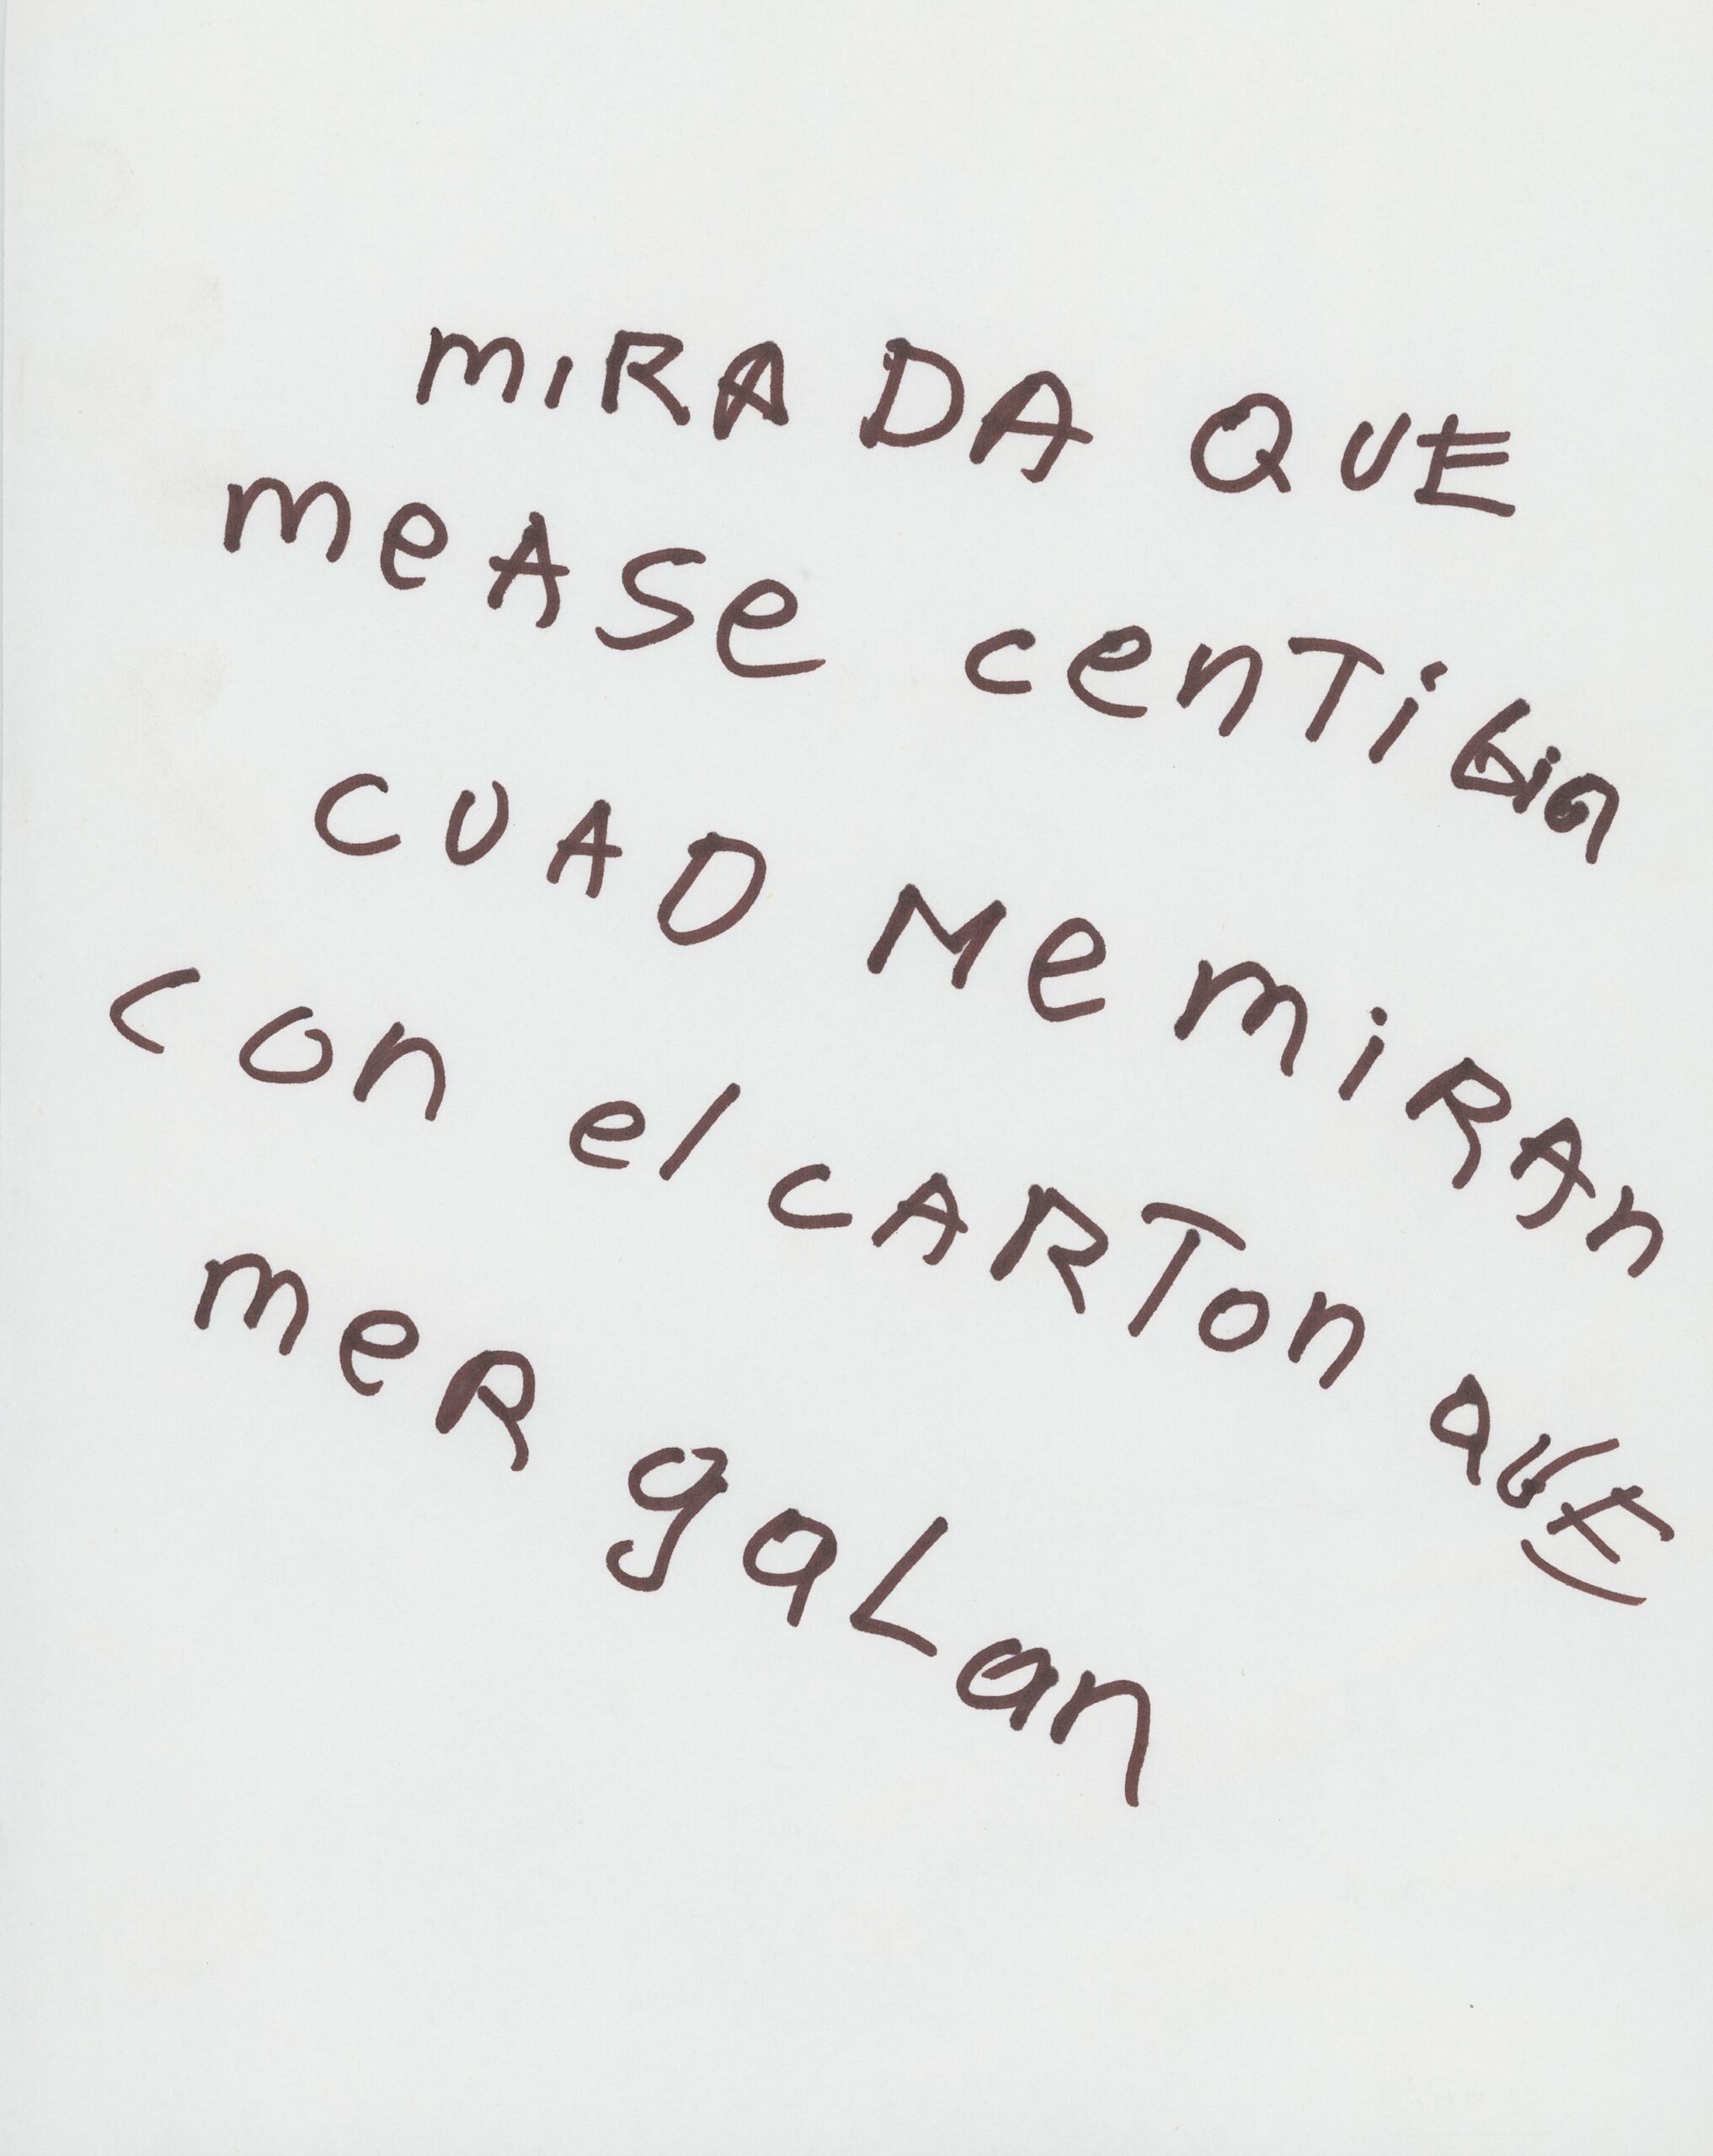 MIRA DA QUE
meAse cenTi bia
CUAO Me miRAn
con el CARTon aUE
meR gaLan